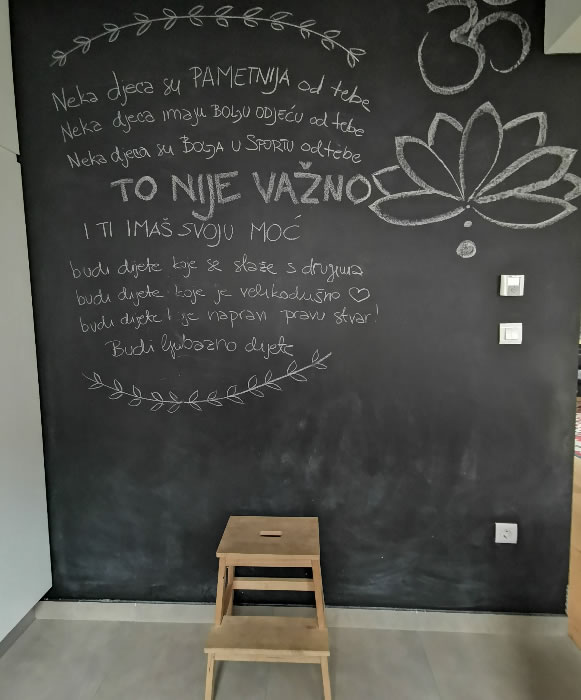 Neka djeca su PAMETNIJA od tebe
Neka djeca imaju BOLJU ODJEĆU od tebe
Neka djeca su BOLJA U SPORTU od tebe
TO NIJE VAŽNO
I TI IMAŠ SVOJU MOĆ
budi dijete koje se slaže s drugima
budi dijete koje je velikodušno ♡
budi dijete i je napravi pravu stvar!
Budi ljubazno dijete
ॐ